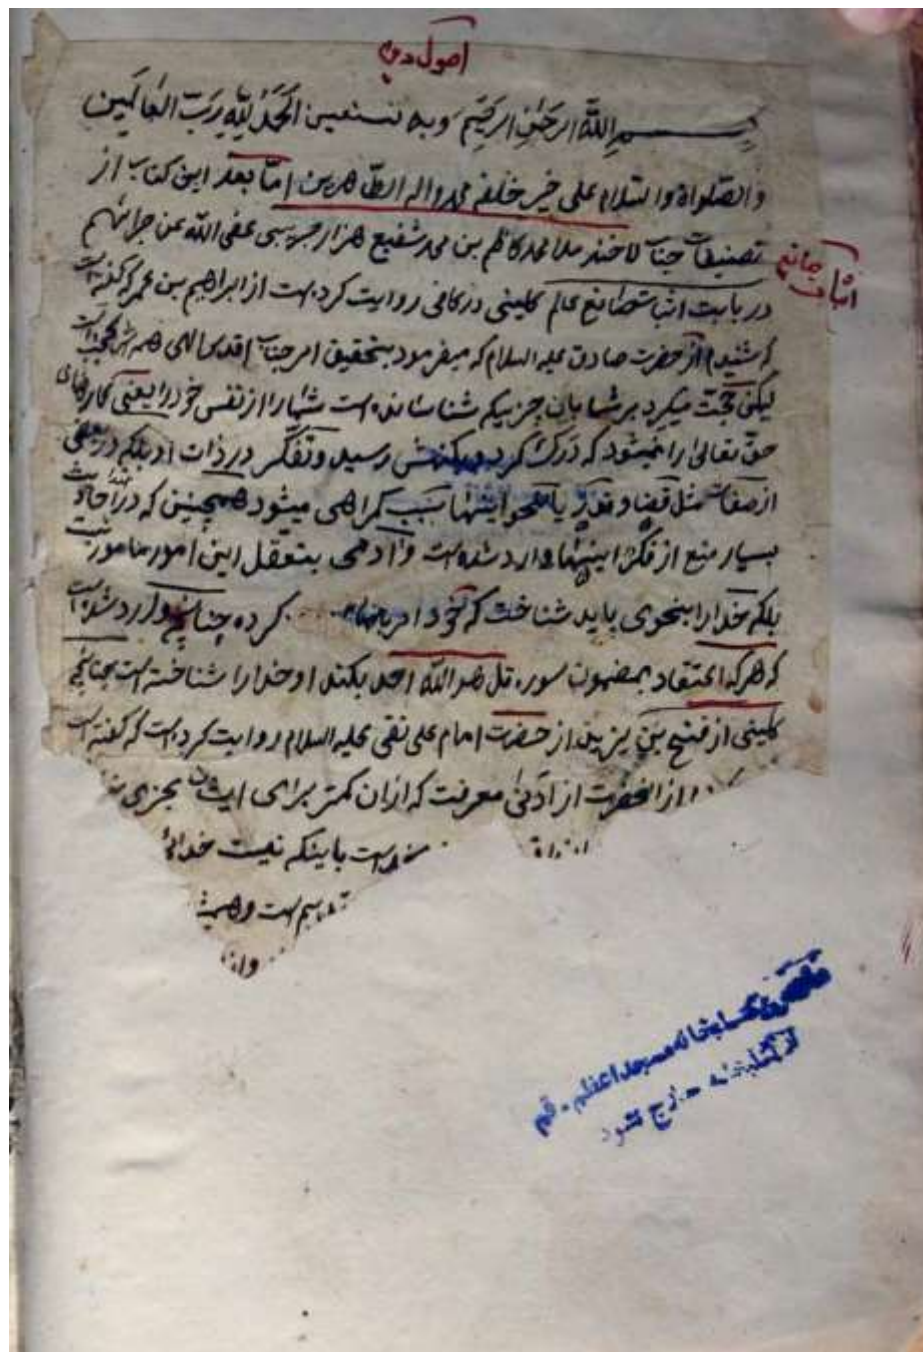 اصول دین
بسم الله الرحمن الرحیم وبه نستعین الحمد لله رب العالمین
والصلواة والسلام علی خیر خلقه محمد واله الطاهرین اما بعد این کتاب از
تصنیفات جناب لاخند ملا محمد کاظم بن محمد شفیع هزارجریبی عفی الله عن جرائمهم
اثبات صانع
در بابت اثبات صانع عالم کلینی در کافی روایت کرده است از ابراهیم بن عمر که گفته است
که شنیدم از حضرت صادق علیه السلام که میفرمود بتحقیق امر جناب اقدس الهی همه
لیکن حجت میکرد بر شما بان چیزیکه شناسانده است شما را از نفس خود را یعنی
حق تعالی را نمیشود که درک کرد و بکنهش رسید و تفکر در ذات او بلکه در بعضی
از صفات مثل قضا و قدر یا نحو اینها سبب گمراهی میشود همچنین که در احادیث
بسیار منع از فکر اینها وارد شده است و ادمی بتعقل این امور مامور نیست
بلکه خدا را بنحوی باید شناخت که خود امر بانها کرده چنانچه وارد شده است
که هر که اعتقاد بمضمون سوره قل هو الله احد بکند او خدا را شناخته است چنانچه
کلینی از فتح بن یزید از حضرت امام علی نقی علیه السلام روایت کرده است که گفته است
از انحضرت از ادنی معرفت که ازان کمتر برای ایشان مجزی
است باینکه نیست خدائی
است و همیشه
وان
کتابخانه مسجد اعظم - قم
از کتابخانه خارج نشود